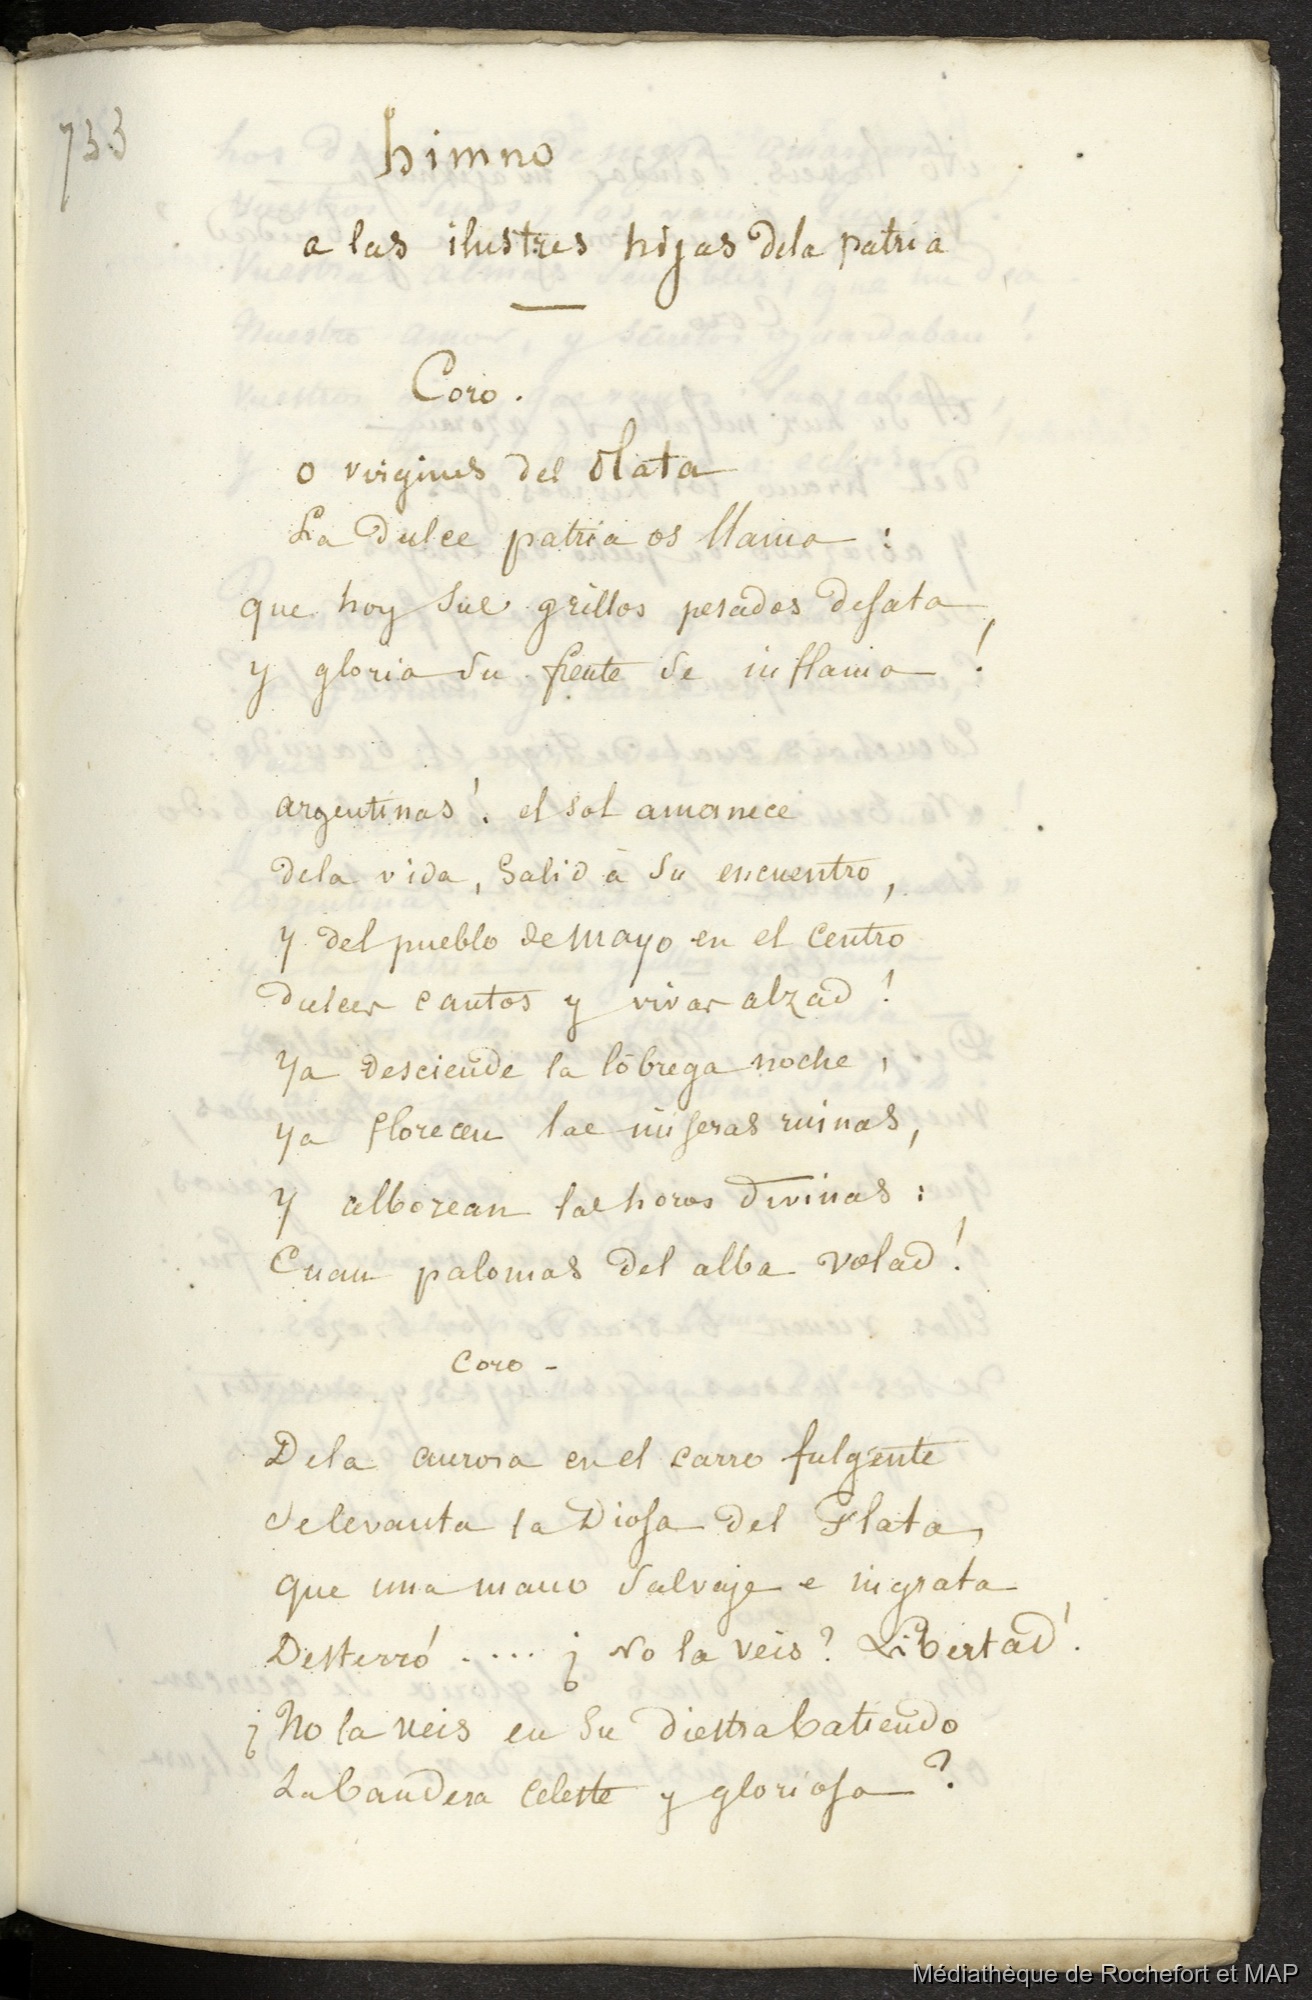 733
himno
a las ilustres hijas dela patria
Coro.
o virgines del Plata
La dulce patria os llama :
que hoy sus grillos pesados desata,
y gloria su frente se inflama !
argentinas ! el sol amanece
dela vida, salid à su encuentro,
y del pueblo de mayo en el centro
dulces cantos y vivas alzad !
ya desciende la lóbrega noche,
ya florecen las miseras ruinas,
y alborean las horas divinas :
Cuan palomas del alba volad !
coro -
Dela aurora en el carro fulgente
se levanta la Diosa del Plata,
que una mano salvaje e ingrata
Desterró ..... ¡ No la veis ? Libertad !
¡ No la veis en su diestra batiendo
La bandera celeste y gloriosa ?
Médiathèque de Rochefort et MAP